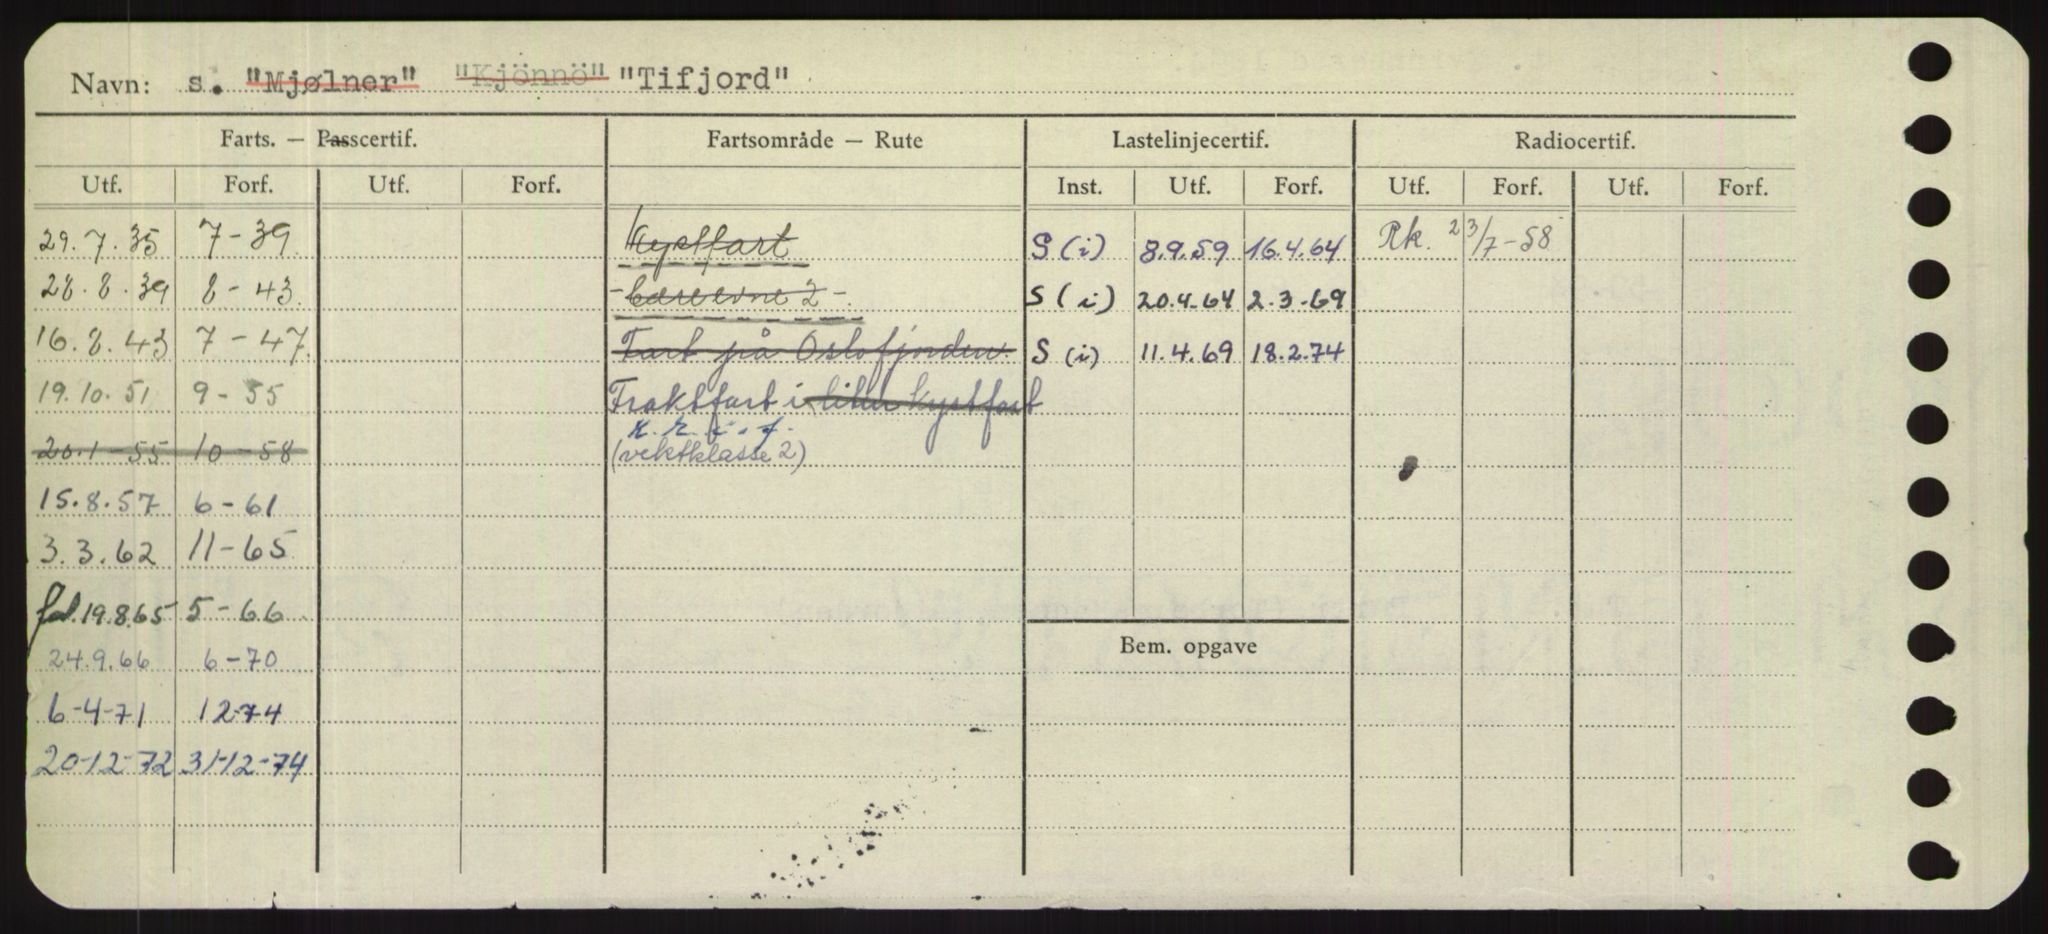 Navn: s. "Mjølner" "Kjönnö" "Tifjord"
Farts. — Passcertif. Fartsområde — Rute Lastelinjecertif. Radiocertif.
Utf. Forf. Utf. Forf. Inst. Utf. Forf. Utf. Forf. Utf. Forf.
29.7.35 7-39. Kystfart S (i) 8.9.59 16.4.64 Rk. 23/7-58
28.8.39 8-43. -bæreevne 2-. S (i) 20.4-64 2.3-69
16.8.43 7-47. Fart på Oslofjorden. S (i) 11.4.69 18.2.74
19.10.51 9-55 Fraktfart i liten kystfart
20.1-55 10-58 (vektklasse 2)
15.8.57 6-61
3.3.62 11-65
19.8.65 5-66
24.9.66 6-70
6-4-71 12-74
20-12-72 31-12-74
Bem. opgave